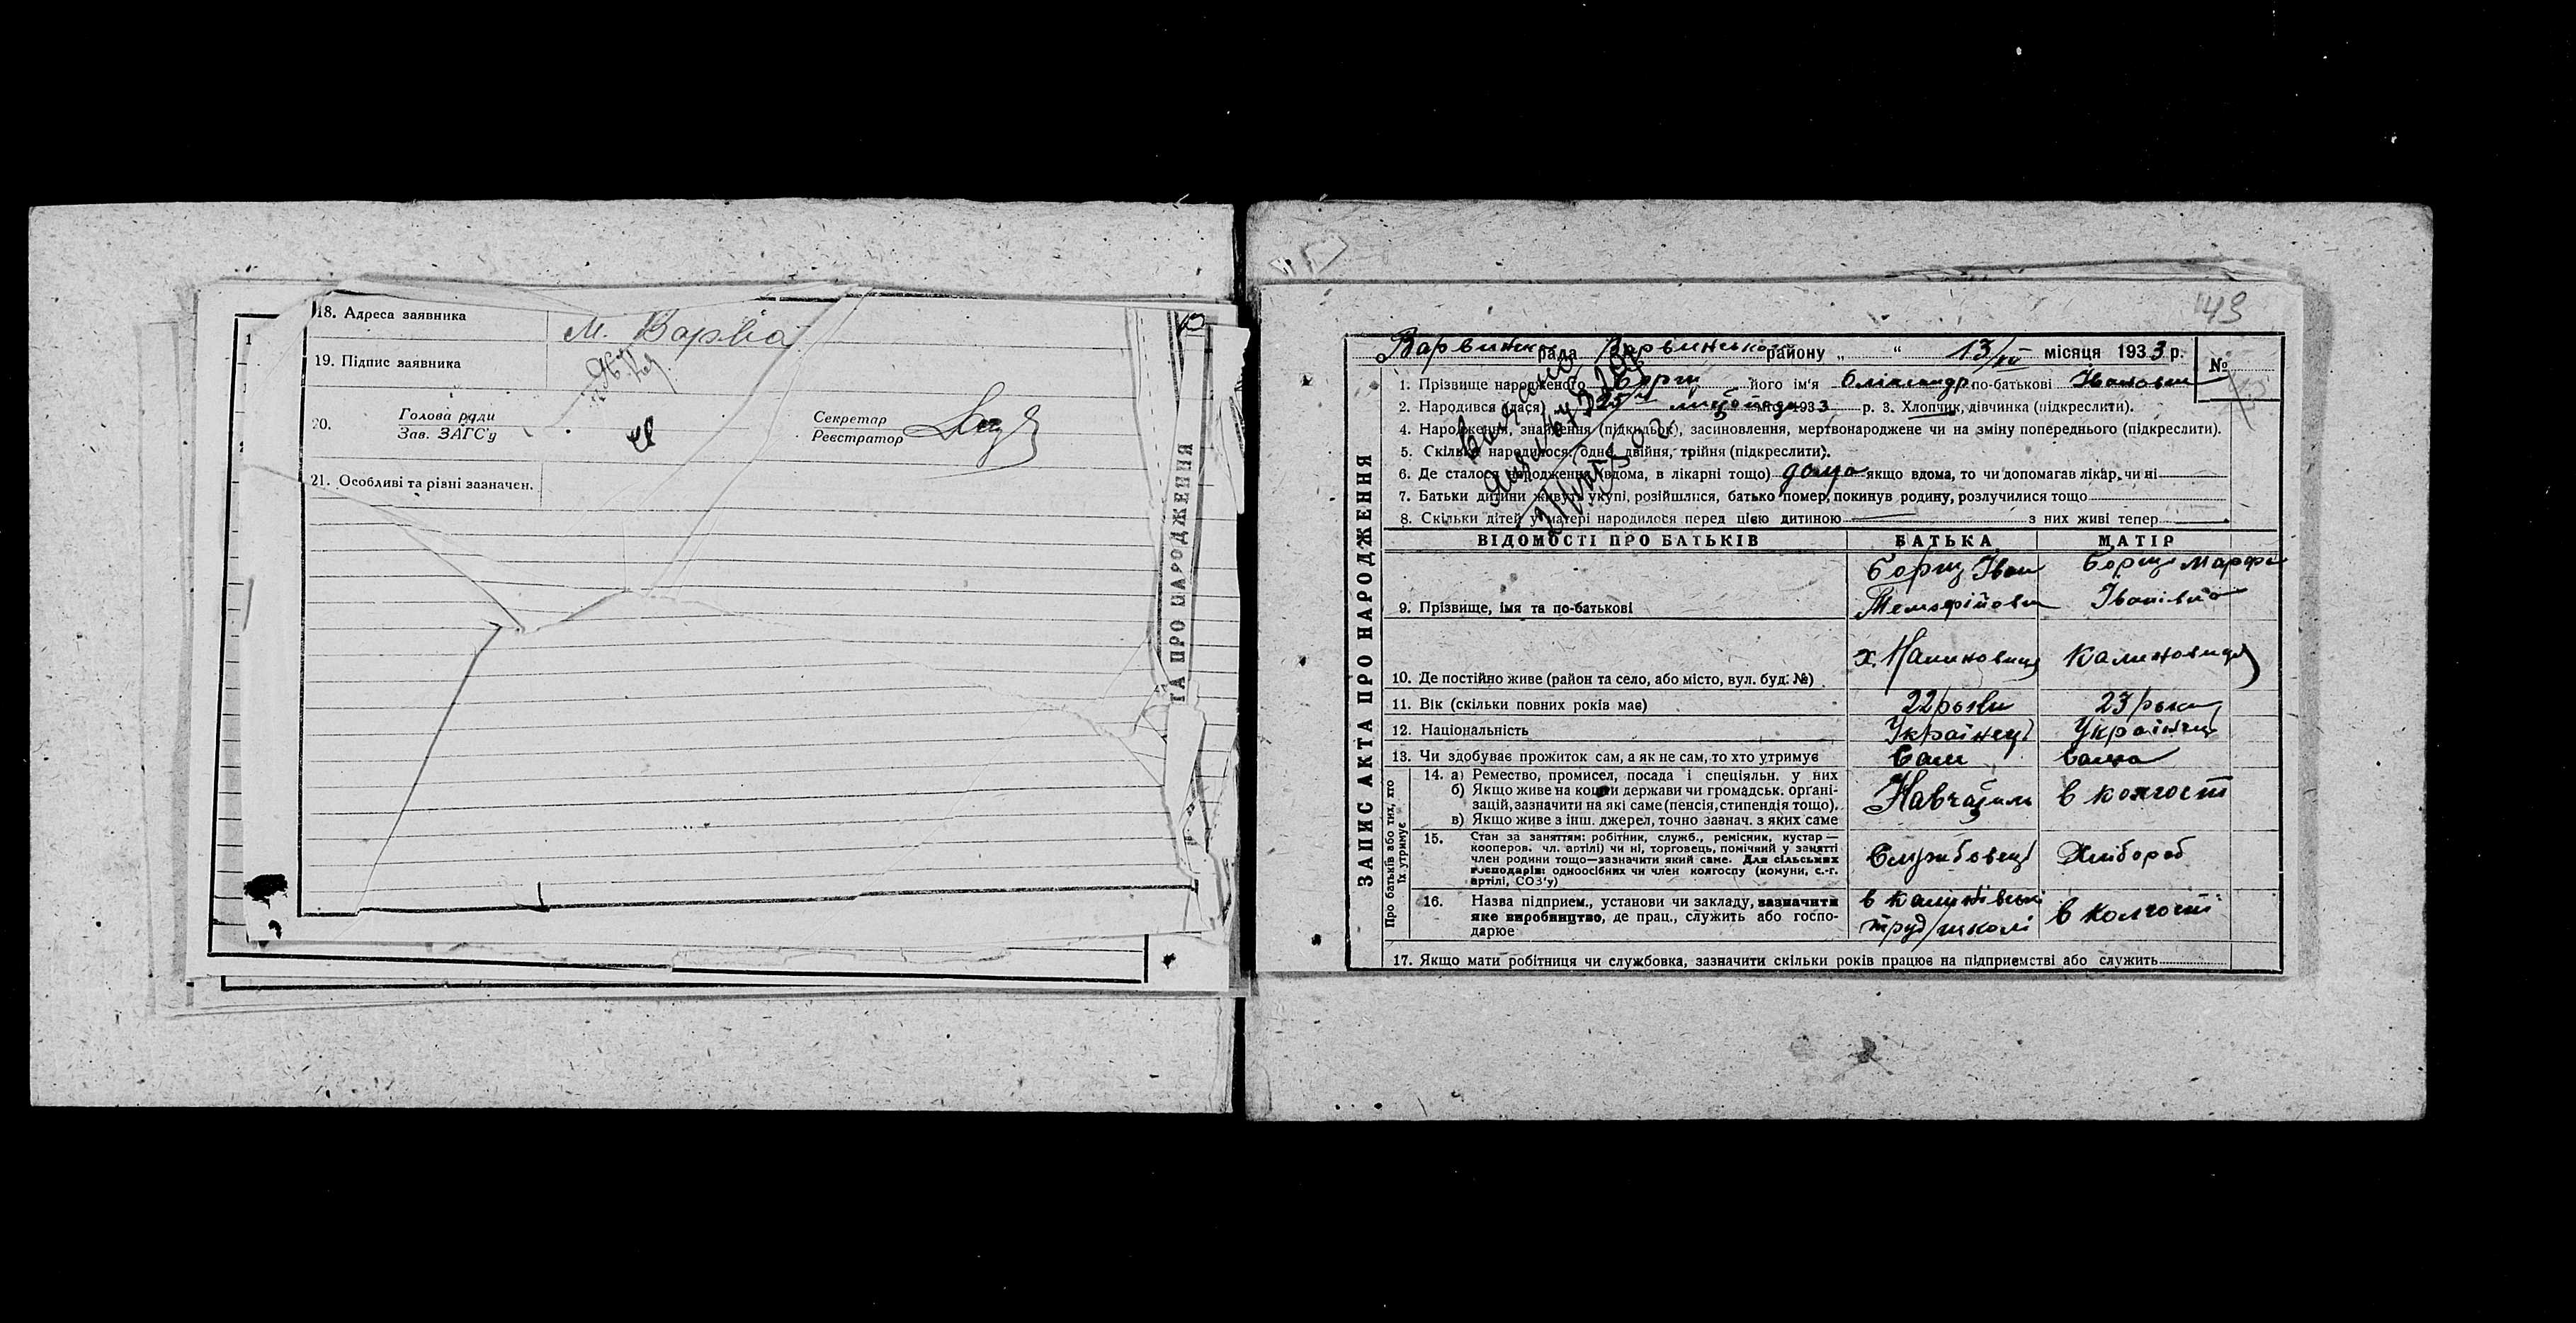 18. Адреса заявника м. Варва
19. Підпис заявника
20. Голова ради
Зав. ЗАГС'у
Секретар
Реєстратор
21. Особливі та рівні зазначен.
ТА ПРО НАРОДЖЕННЯ
143
Варвинська рада Варвинського району „ “ 13/ місяця 1933 р. №
1. Прізвище народженого Борщ його ім'я Олександр по-батькові Іванович
2. Народився (лася) 25 1933 р. 3. Хлопчик, дівчинка (підкреслити).
4. Народження, знайдення (підкидьок), засиновлення, мертвонароджене чи на зміну попереднього (підкреслити).
5. Скільки народилося: одне, двійня, трійня (підкреслити).
6. Де сталося народження (вдома, в лікарні тощо) дома якщо вдома, то чи допомагав лікар, чи ні
7. Батьки дитини живуть укупі, розійшлися, батько помер, покинув родину, розлучилися тощо
8. Скільки дітей у матері народилося перед цією дитиною з них живі тепер
ЗАПИС АКТА ПРО НАРОДЖЕННЯ
ВІДОМОСТІ ПРО БАТЬКІВ БАТЬКА МАТІР
9. Прізвище, імя та по-батькові Борщ Іван Борщ Марфа Іванівна
10. Де постійно живе (район та село, або місто, вул. буд. №) х. Калиновиця Калиновиця
11. Вік (скільки повних років має) 22 роки 23 роки
12. Національність Українець Українець
13. Чи здобуває прожиток сам, а як не сам, то хто утримує Сам Сама
Про батьків або тих, хто їх утримує
14. а) Ремество, промисел, посада і спеціяльн. у них
б) Якщо живе на кошти держави чи громадськ. органі-
зацій, зазначити на які саме (пенсія, стипендія тощо).
в) Якщо живе з інш. джерел, точно зазнач. з яких саме
в колгоспі
15. Стан за заняттям: робітник, служб., ремісник, кустар —
кооперов. чл. артілі) чи ні, торговець, помічний у занятті
член родини тощо—зазначити який саме. Для сільських
господарів: одноосібних чи член колгоспу (комуни, с.-г.
артілі, СОЗ'у)
Службовець Хлібороб
16. Назва підприєм., установи чи закладу, зазначити
яке виробництво, де прац., служить або госпо-
дарює
в
труд/школі в колгоспі
17. Якщо мати робітниця чи службовка, зазначити скільки років працює на підприємстві або служить